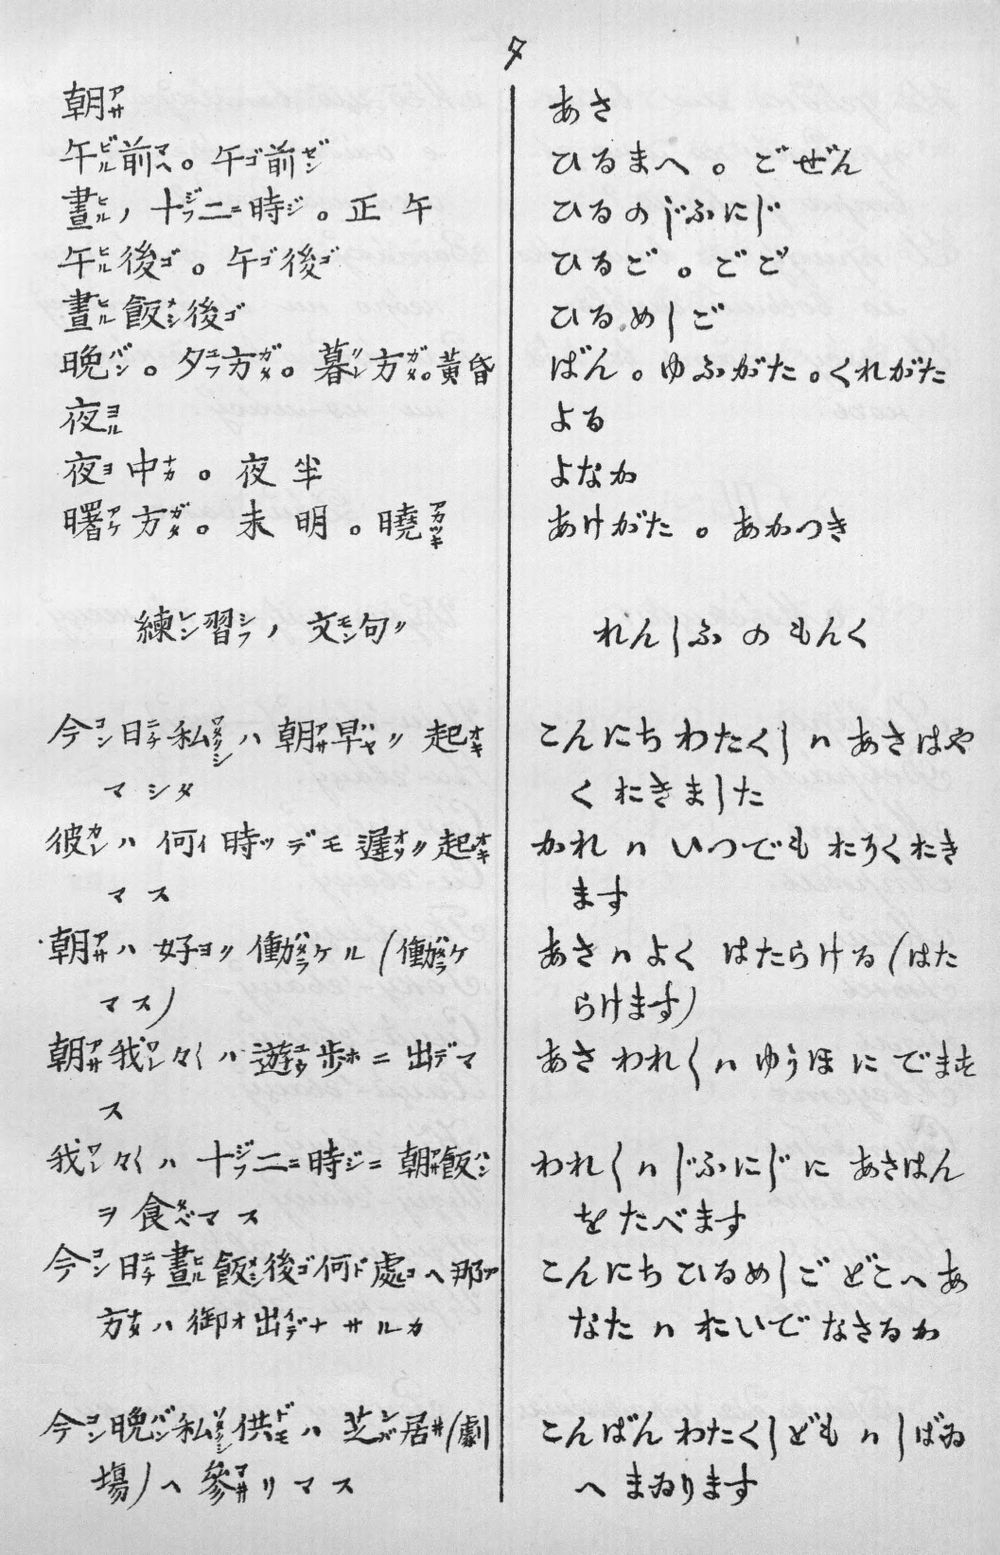 タ
朝アサ
午ビル前マヘ。午ゴ前ゼン
晝ヒルノ十ジフ二ニ時ジ。正午
午ヒル後ゴ。午ゴ後ゴ
晝ヒル飯メシ後ゴ
晩バン。夕ユフ方ガタ。暮クレ方ガタ。黄昏
夜ヨル
夜ヨ中ナカ。夜半
曙アケ方ガタ。未明。曉アカツキ
練レン習シフノ文モン句ク
今コン日ニチ私ワタクシハ朝アサ早ハヤク起オキ
マシタ
彼カレハ何イ時ツデモ遲オソク起オキ
マス
朝アサハ好ヨク働ハタラケル(働ハタラケ
マス)
朝アサ我ワレ々〱ハ遊ユウ歩ホニ出デマ
ス
我ワレ々〱ハ十ジフ二ニ時ジニ朝アサ飯ハン
ヲ食タベマス
今コン日ニチ晝ヒル飯メシ後ゴ何ド處コヘ那ア
方ナタハ御オ出イデナサルカ
今コン晩バン私ワタクシ供ドモハ芝シバ居ヰ(劇
場)ヘ參マヰリマス
あさ
ひるまへ。ごぜん
ひるのじふにじ
ひるご。ごご
ひるめしご
ばん。ゆふがた。くれがた
よる
よなか
あけがた。あかつき
れんしふのもんく
こんにちわたくしハあさはや
くおきました
かれハいつでもおそくおき
ます
あさハよくはたらける(はた
らけます)
あさわれ〱ハゆうほにでます
われ〱ハじふにじにあさはん
をたべます
こんにちひるめしごどこへあ
なたハおいでなさるか
こんばんわたくしどもハしばゐ
へまゐります